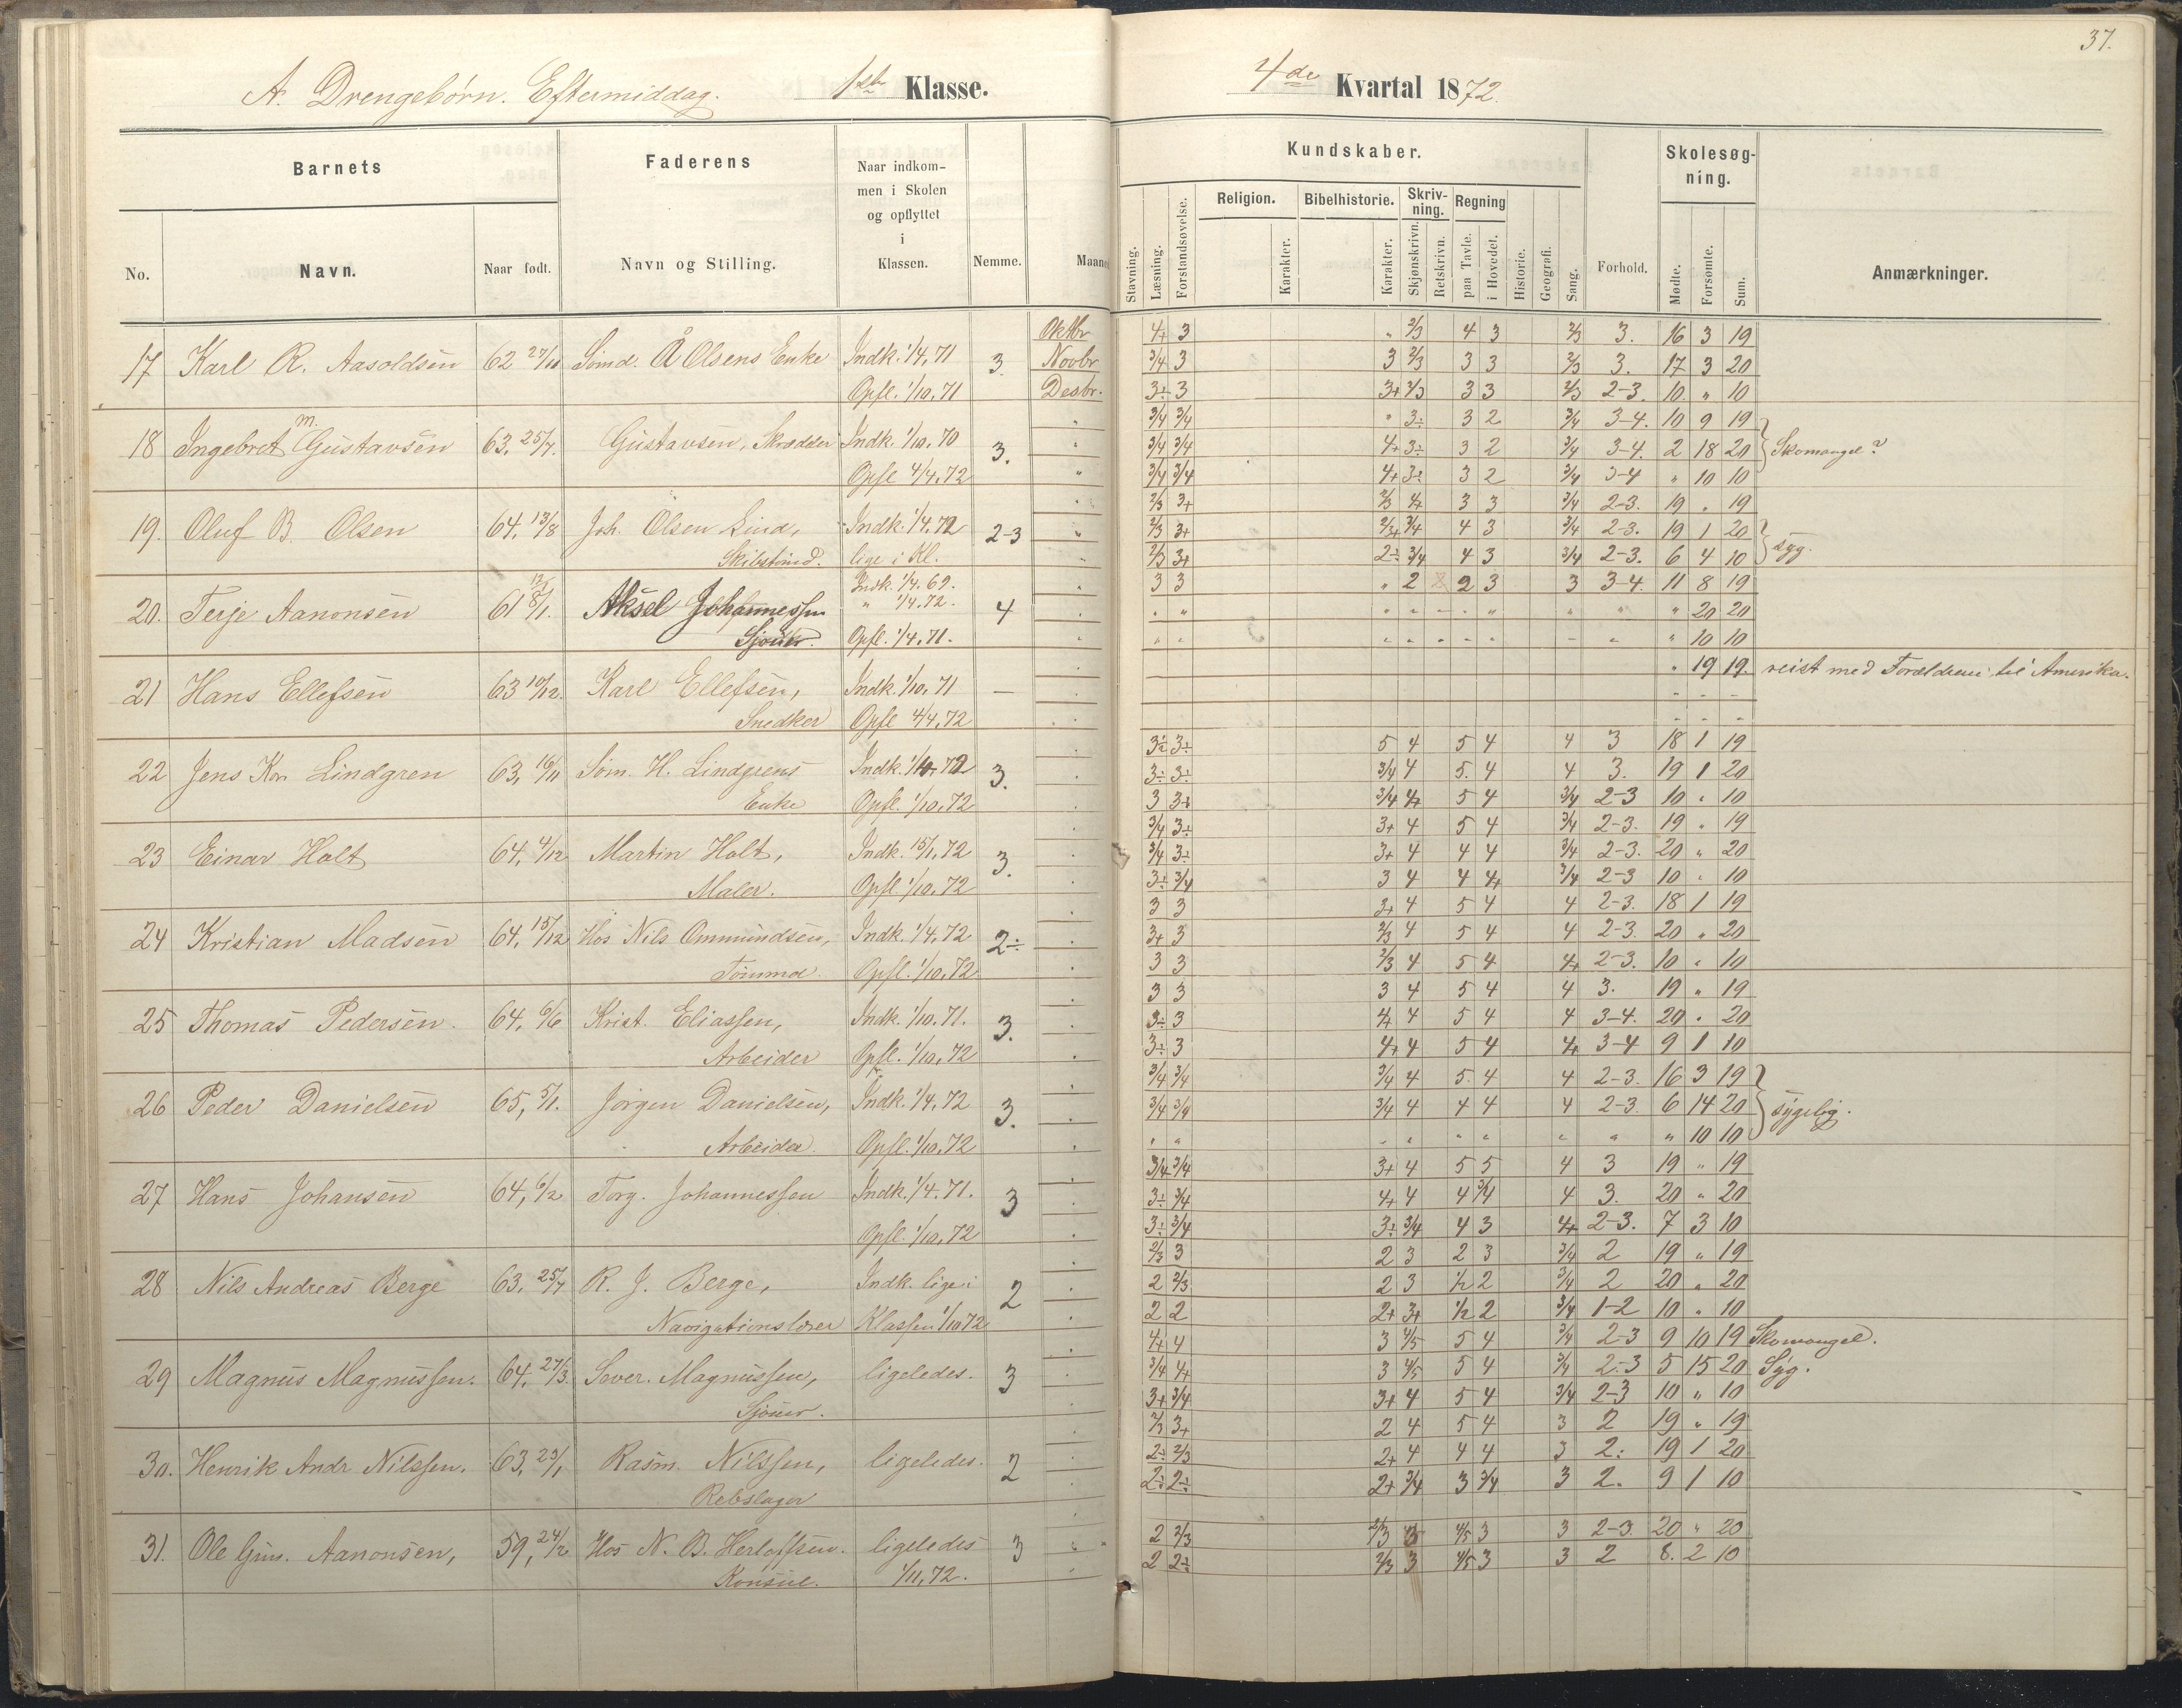 37.
A. Drengebørn. Eftermiddag. 1ste Klasse. 4de Kvartal 1872.
Barnets Faderens Naar indkom-
men i Skolen
og opflyttet
i
Klassen.
No. Navn. Naar født. Navn og Stilling. Nemme. Maaned
Kundskaber. Skolesøg-
ning.
Stavning. Læsning. Forstandsøvelse. Religion. Karakter. Bibelhistorie. Karakter. Skriv-
ning. Skjønskrivn. Retskrivn. Regning paa Tavle. i Hovedet. Historie. Geografi. Sang. Forhold. Mødte. Forsømte. Sum. Anmærkninger.
Oktbr 4+ 3 " 2/3 4 3 2/3 3. 16 3 19
17 Karl R. Aasoldsen 62 27/11 Sømd. Å Olsens Enke Indk. 1/4.71 3. Novbr 3/4 3 3 2/3 3 3 2/3 3. 17 3 20
Opfl. 1/10.71 Desbr. 3÷ 3 3+ 2/3 3 3 2/3 2-3. 10. " 10
" 3/4 3/4 " 3÷ 3 2 3/4 3-4. 10 9 19
18 Ingebret M. Gustavsen 63, 25/7. Gustavsen, Skrædder Indk. 1/10.70 3. " 3/4 3/4 4+ 3÷ 3 2 3/4 3-4. 2 18 20 Skomangel?
Opfl 4/4.72 " 3/4 3/4 4+ 3÷ 3 2 3/4 3-4 " 10 10
" 2/3 3+ 2/3 4+ 3 3 3/4 2-3. 19 " 19
19. Oluf B. Olsen 64, 13/8 Joh. Olsen Lind, Indk. 1/4.72 2-3 " 2/3 3+ 2/3+ 3/4 4 3 3/4 2-3. 19 1 20 syg.
Skibstømd. lige i Kl. " 2/3 3+ 2÷ 3/4 4 3 3/4 2-3. 6 4 10
Indk. 1/4.69. 3 3 " 2 2 3 3 3-4. 11 8 19
20. Terje Aanonsen 61 8/1. Aksel Johannessen " 1/4.72. 4 " " " " " " " " " " 20 20
Sjouer. Opfl. 1/4.71. " " " " " " " " " " " 10 10
" 19 19. reist med Forældrene til Amerika.
21 Hans Ellefsen 63 10/12. Karl Ellefsen, Indk. 1/10.71 — " - - -
Snedker Opfl 4/4.72 " - - -
" 3÷ 3÷ 5 4 5 4 4 3 18 1 19
22 Jens Kr. Lindgren 63, 16/11 Søm. H. Lindgrens Indk. 3. " 3÷ 3÷ 3/4 4 5. 4 4 3. 19 1 20
Enke Opfl. 1/10.72 " 3 3+ 3/4 4+ 5 4 3/4 2-3 10 " 10
" 3/4 3÷ 3+ 4 5 4 3/4 2-3. 19 " 19
23 Einar Holt 64, 4/12 Martin Holt, Indk. 15/1.72 3. " 3/4 3÷ 3+ 4 4 4 3/4 2-3. 20 " 20
Maler. Opfl. 1/10.72 " 3÷ 3/4 3 4 4 4+ 3/4 2-3 10 " 10
" 3 3 3+ 4 5 4 4 2-3. 18 1 19
24 Kristian Madsen 64, 15/12 Hos Nils Ommundsen, Indk. 1/4.72 2÷ " 3+ 3 2/3 4 5 4 4 2-3. 20 " 20
Tømmd. Opfl. 1/10.72 " 3 3 2/3 4 5 4 4+ 2-3. 10 " 10
" 3 3 3 4 5 4 4 3. 19 " 19
25 Thomas Pedersen. 64, 6/6 Krist. Eliassen, Indk. 1/10.71. 3. " 3÷ 3 4+ 4 5 4 4 3-4. 20 " 20
Arbeider Opfl. 1/10.72 " 3÷ 3 4+ 4 5 4 4+ 3-4 9 1 10
" 3/4 3/4 3/4 4 5. 4 4 2-3. 16 3 19
26 Peder Danielsen 65, 5/1. Jørgen Danielsen, Indk. 1/4.72 3. " 3/4 3/4 3/4 4 4 4 4 2-3. 6 14 20 sygelig.
Arbeider. Opfl. 1/10.72 " " " " " " " " " " 10 10
" 3/4 3/4 3+ 4 5 5 4 3 19 " 19
27 Hans Johansen 64, 6/2 Torg. Johannessen Indk. 1/4.71. 3 " 3÷ 3/4 4+ 4 4 3/4 4 3. 20 " 20
Opfl. 1/10.72 " 3÷ 3/4 3÷ 3/4 4 3 4+ 2-3. 7 3 10
" 2/3 3 2 3 2 3 3/4 2 19 " 19
28 Nils Andreas Berge 63, 25/7 R. J. Berge, Indk. lige i 2 " 2 2/3 2 3 1/2 2 3/4 2 20 " 20
Navigationslærer Klassen 1/10 72 " 2 2 2+ 3+ 1/2 2 3/4 1-2 10 " 10
" 4+ 4 3 4/5 5 4 3/4 2-3 9 10 19 Skomangel.
29 Magnus Magnussen. 64, 27/3. Sever. Magnussen, ligeledes. 3 " 3/4 4+ 3 4/5 5 4 3/4 2-3 5 15 20 Syg.
Sjouer. " 3+ 3/4 3+ 4 5 4 3/4 2-3 10 " 10
" 2/3 3+ 2 4 5 4 3 2 19 " 19
30. Henrik Andr Nilssen. 63, 29/1 Rasm. Nilssen, ligeledes. 2 " 2÷ 2/3 2+ 4 4 4 3 2. 19 1 20
Rebslager " 2÷ 2÷ 2+ 3/4 3 3/4 3 2. 9 1 10
31. Ole Gun. Aanonsen, 59, 24/2 Hos N. B. Herlofssen. ligeledes 3 " " 2 2/3 2/3 4/5 3 3 2-3. 20 " 20
Konsul. 1/11.72. " 2 2÷ 2/3 3 4/5 3 3 2 8. 2 10